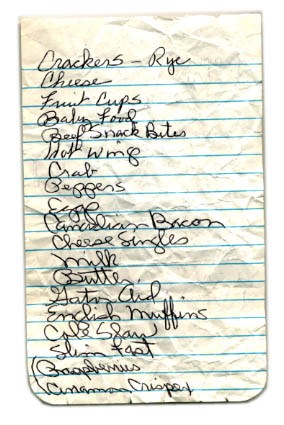 Crackers - Rye
Cheese
Fruit Cups
Baby Food
Beef Snack Bites
Hot Wing
Crab
Peppers
Eggs
Canadian Bacon
Cheese Singles
Milk
Butter
Gator Aid
English Muffins
Cole Slaw
Slim Fast
(Raspberries
Cinamon Crispex)